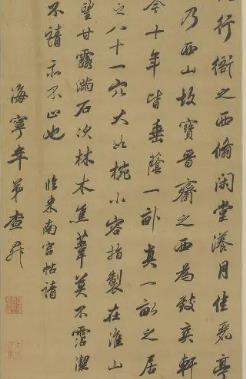 行衙之西翛閒堂漾月佳麗亭
乃西山故寶晉齋之西為致爽軒
今十年皆垂蔭一畝真一畝之居
之八十一穴大如椀小容指製在淮山
望甘露滿石次林木焦葦莫不霑潔
不請亦不止也 臨米南宮帖請
海寧年弟查昇